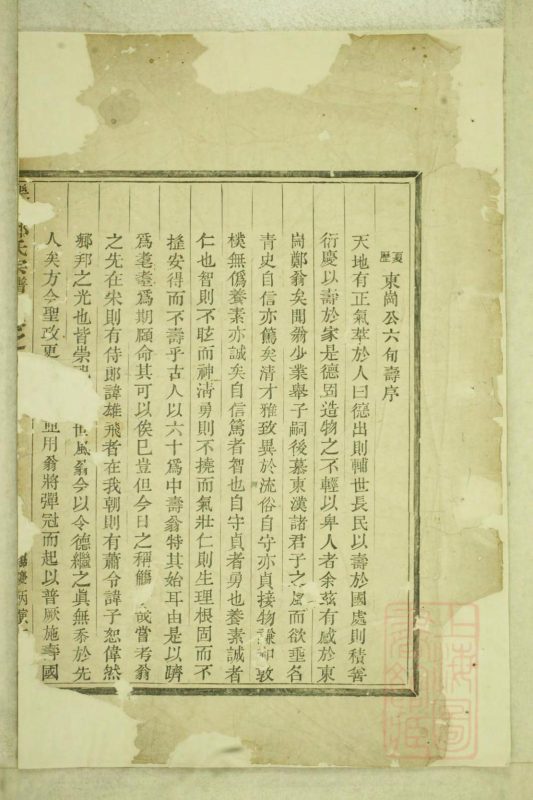 夏歷 東崗公六旬壽序
天地有正氣萃於人曰德出則輔世長民以壽於國處則積善
衍慶以壽於家是德固造物之不輕以卑人者余茲有感於東
崗鄭翁矣聞翁少業舉子嗣後慕東漢諸君子之風而欲垂名
青史自信亦篤矣清才雅致異於流俗自守亦貞接物謙沖敦
樸無僞養素亦誠矣自信篤者智也自守貞者勇也養素誠者
仁也智則不眩而神清勇則不撓而氣壯仁則生理根固而不
搖安得而不壽乎古人以六十爲中壽翁特其始耳由是以躋
爲耄耋爲期頤命其可以俟已豈但今日之稱觴 哉嘗考翁
之先在宋則有侍郎諱雄飛者在我朝則有蕭令諱子恕偉然
鄉邦之光也皆崇祀 世風翁今以令德繼之眞無忝於先
人矣方今聖改更 並用翁將彈冠而起以普厥施壽國
氏宗譜